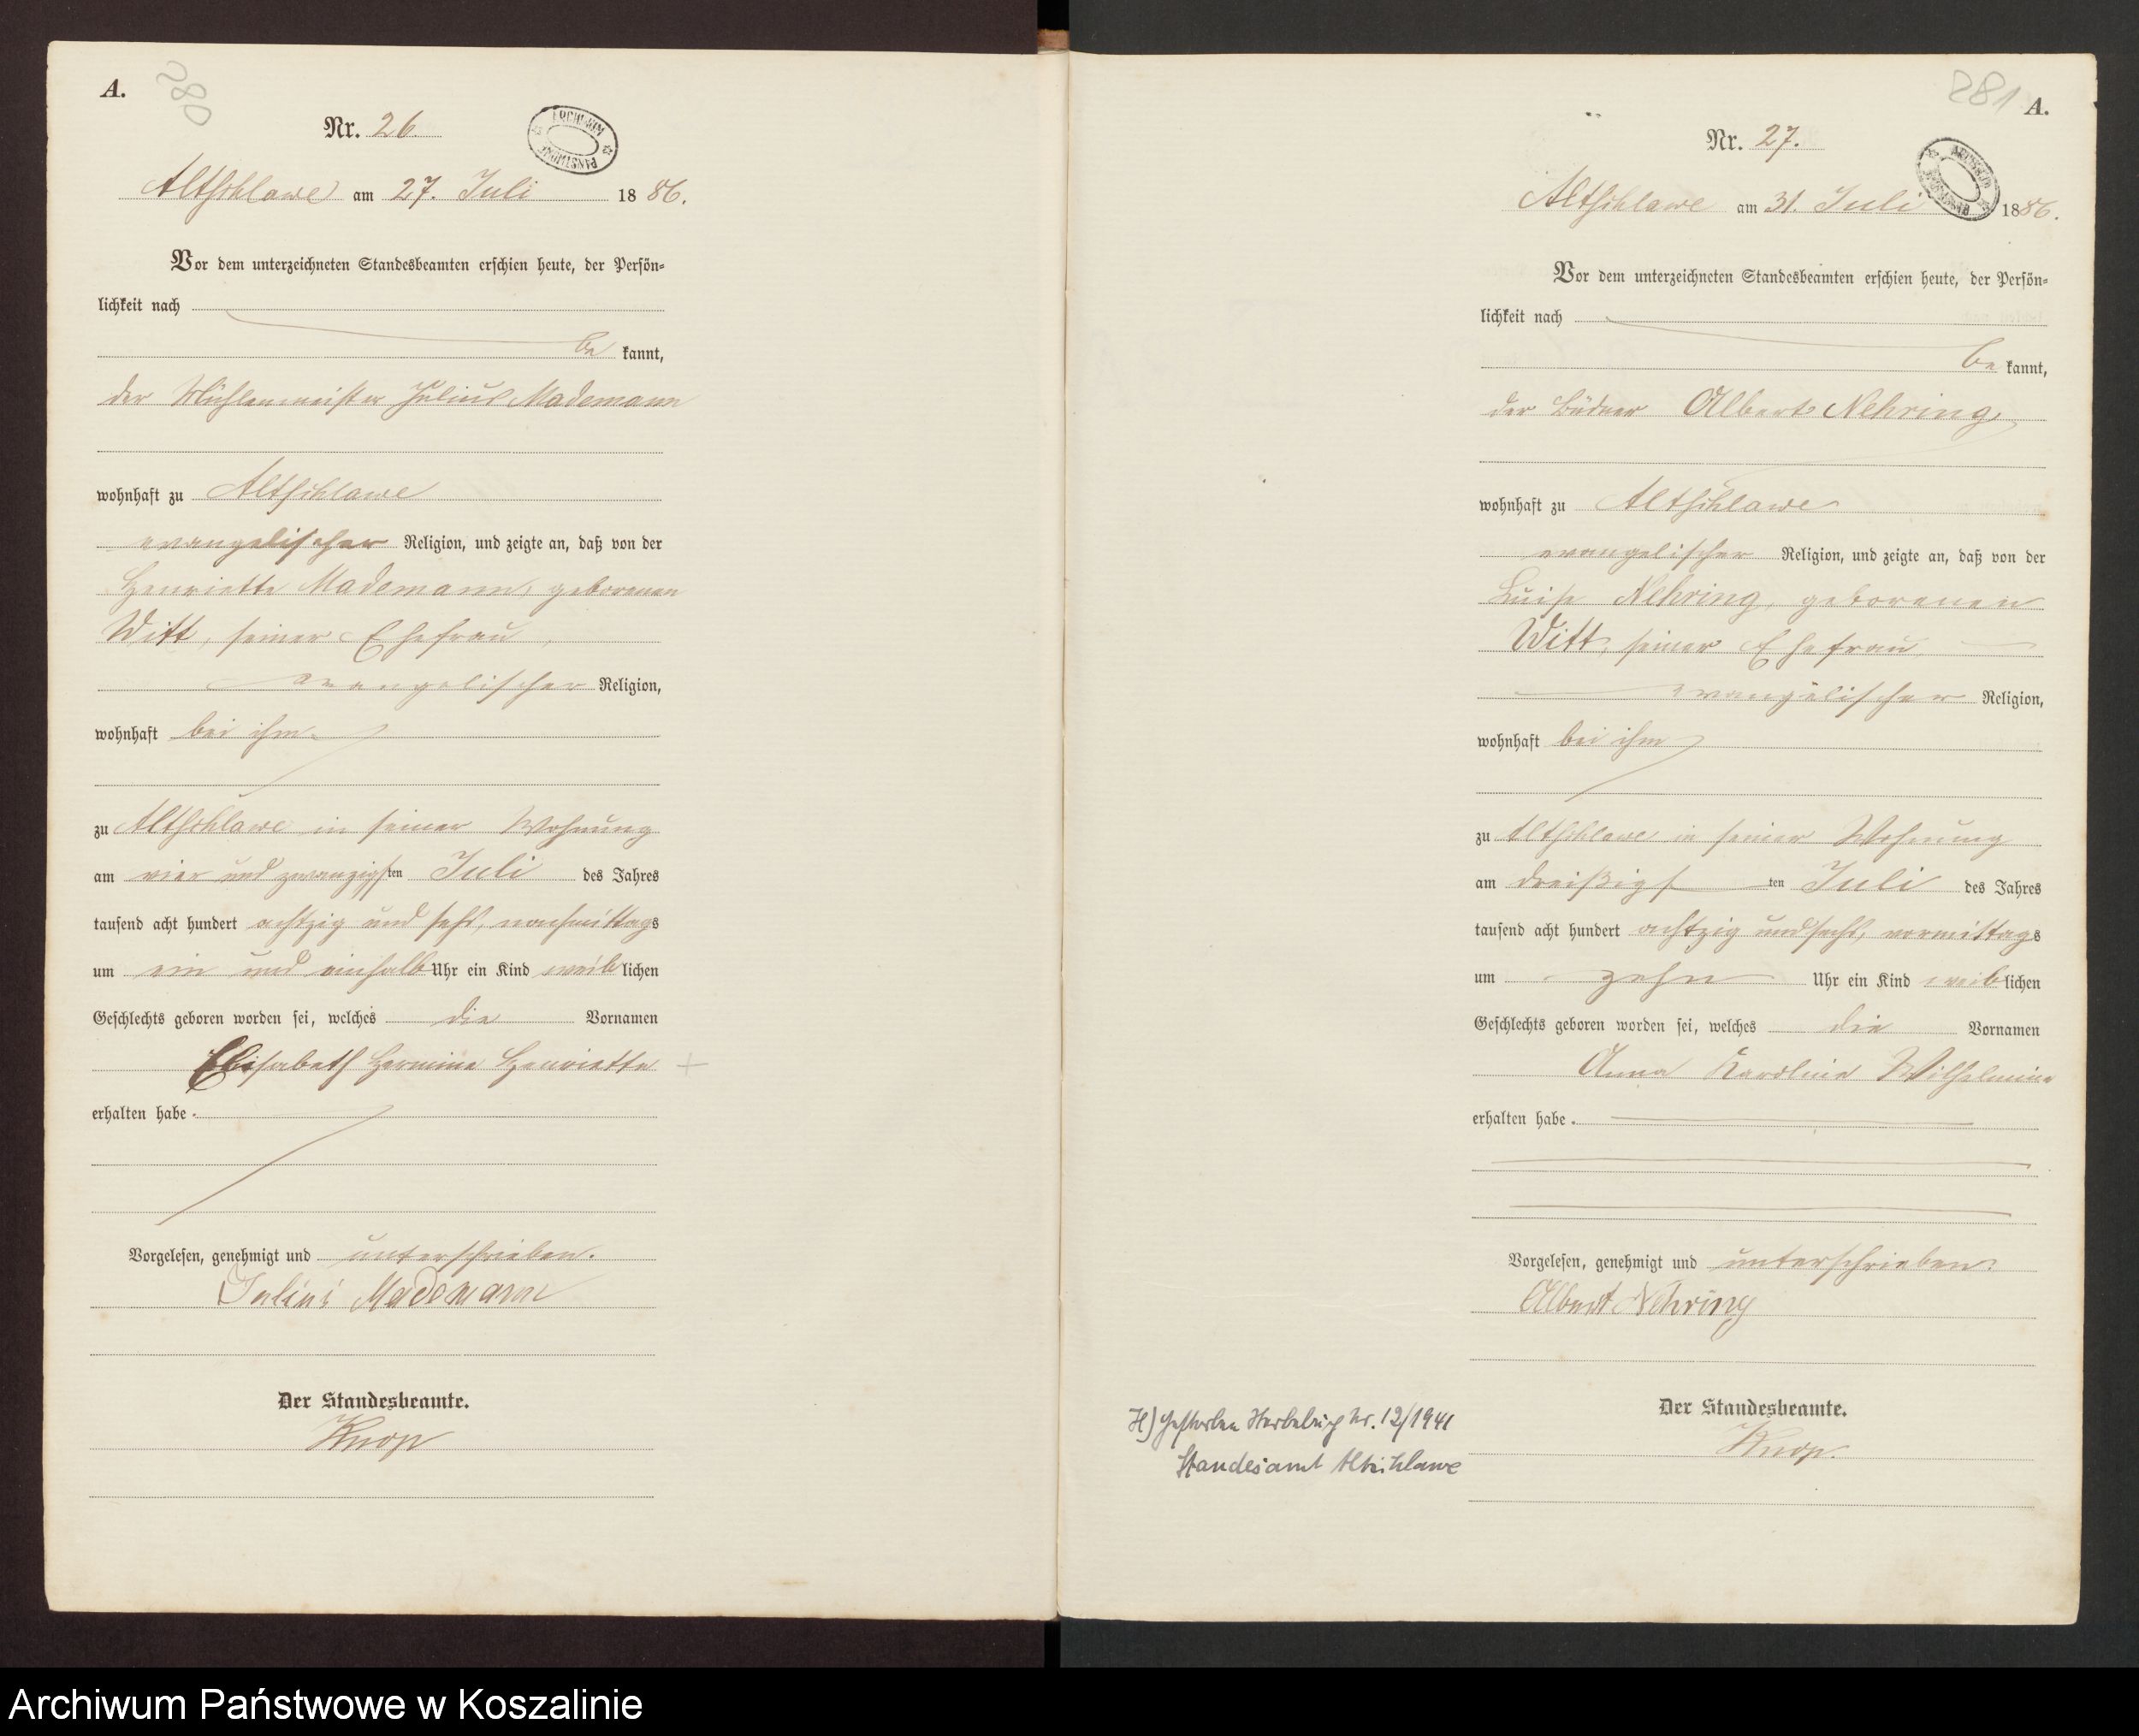 A.
280
Nr. 26.
ARCHIWUM PAŃSTWOWE
Altschlawe am 27. Juli 1886.
Vor dem unterzeichneten Standesbeamten erschien heute, der Persön-
lichkeit nach
be kannt,
der Mühlenmeister Julius Mademann
wohnhaft zu Altschlawe
evangelischer Religion, und zeigte an, daß von der
Henriette Mademann, geborenen
Witt, seiner Ehefrau,
evangelischer Religion,
wohnhaft bei ihm.
zu Altschlawe in seiner Wohnung
am vier und zwanzigsten Juli des Jahres
tausend acht hundert achtzig und sechs, nachmittags
um ein und einhalb Uhr ein Kind weiblichen
Geschlechts geboren worden sei, welches die Vornamen
Elisabeth Hermine Henriette
erhalten habe.
Vorgelesen, genehmigt und unterschrieben.
Julius Mademann
Der Standesbeamte.
Knop
281
A.
Nr. 27.
Altschlawe am 31. Juli 1886.
Vor dem unterzeichneten Standesbeamten erschien heute, der Persön-
lichkeit nach
be kannt,
der Büdner Albert Nehring,
wohnhaft zu Altschlawe
evangelischer Religion, und zeigte an, daß von der
Luise Nehring, geborenen
Witt, seiner Ehefrau,
evangelischer Religion,
wohnhaft bei ihm
zu Altschlawe in seiner Wohnung
am dreißigsten Juli des Jahres
tausend acht hundert achtzig und sechs, vormittags
um zehn Uhr ein Kind weiblichen
Geschlechts geboren worden sei, welches die Vornamen
Anna Karoline Wilhelmine
erhalten habe.
Vorgelesen, genehmigt und unterschrieben.
Albert Nehring
Der Standesbeamte.
Knop.
H) Gestorben Sterbebuch Nr. 12/1941
Standesamt Altschlawe
Archiwum Państwowe w Koszalinie